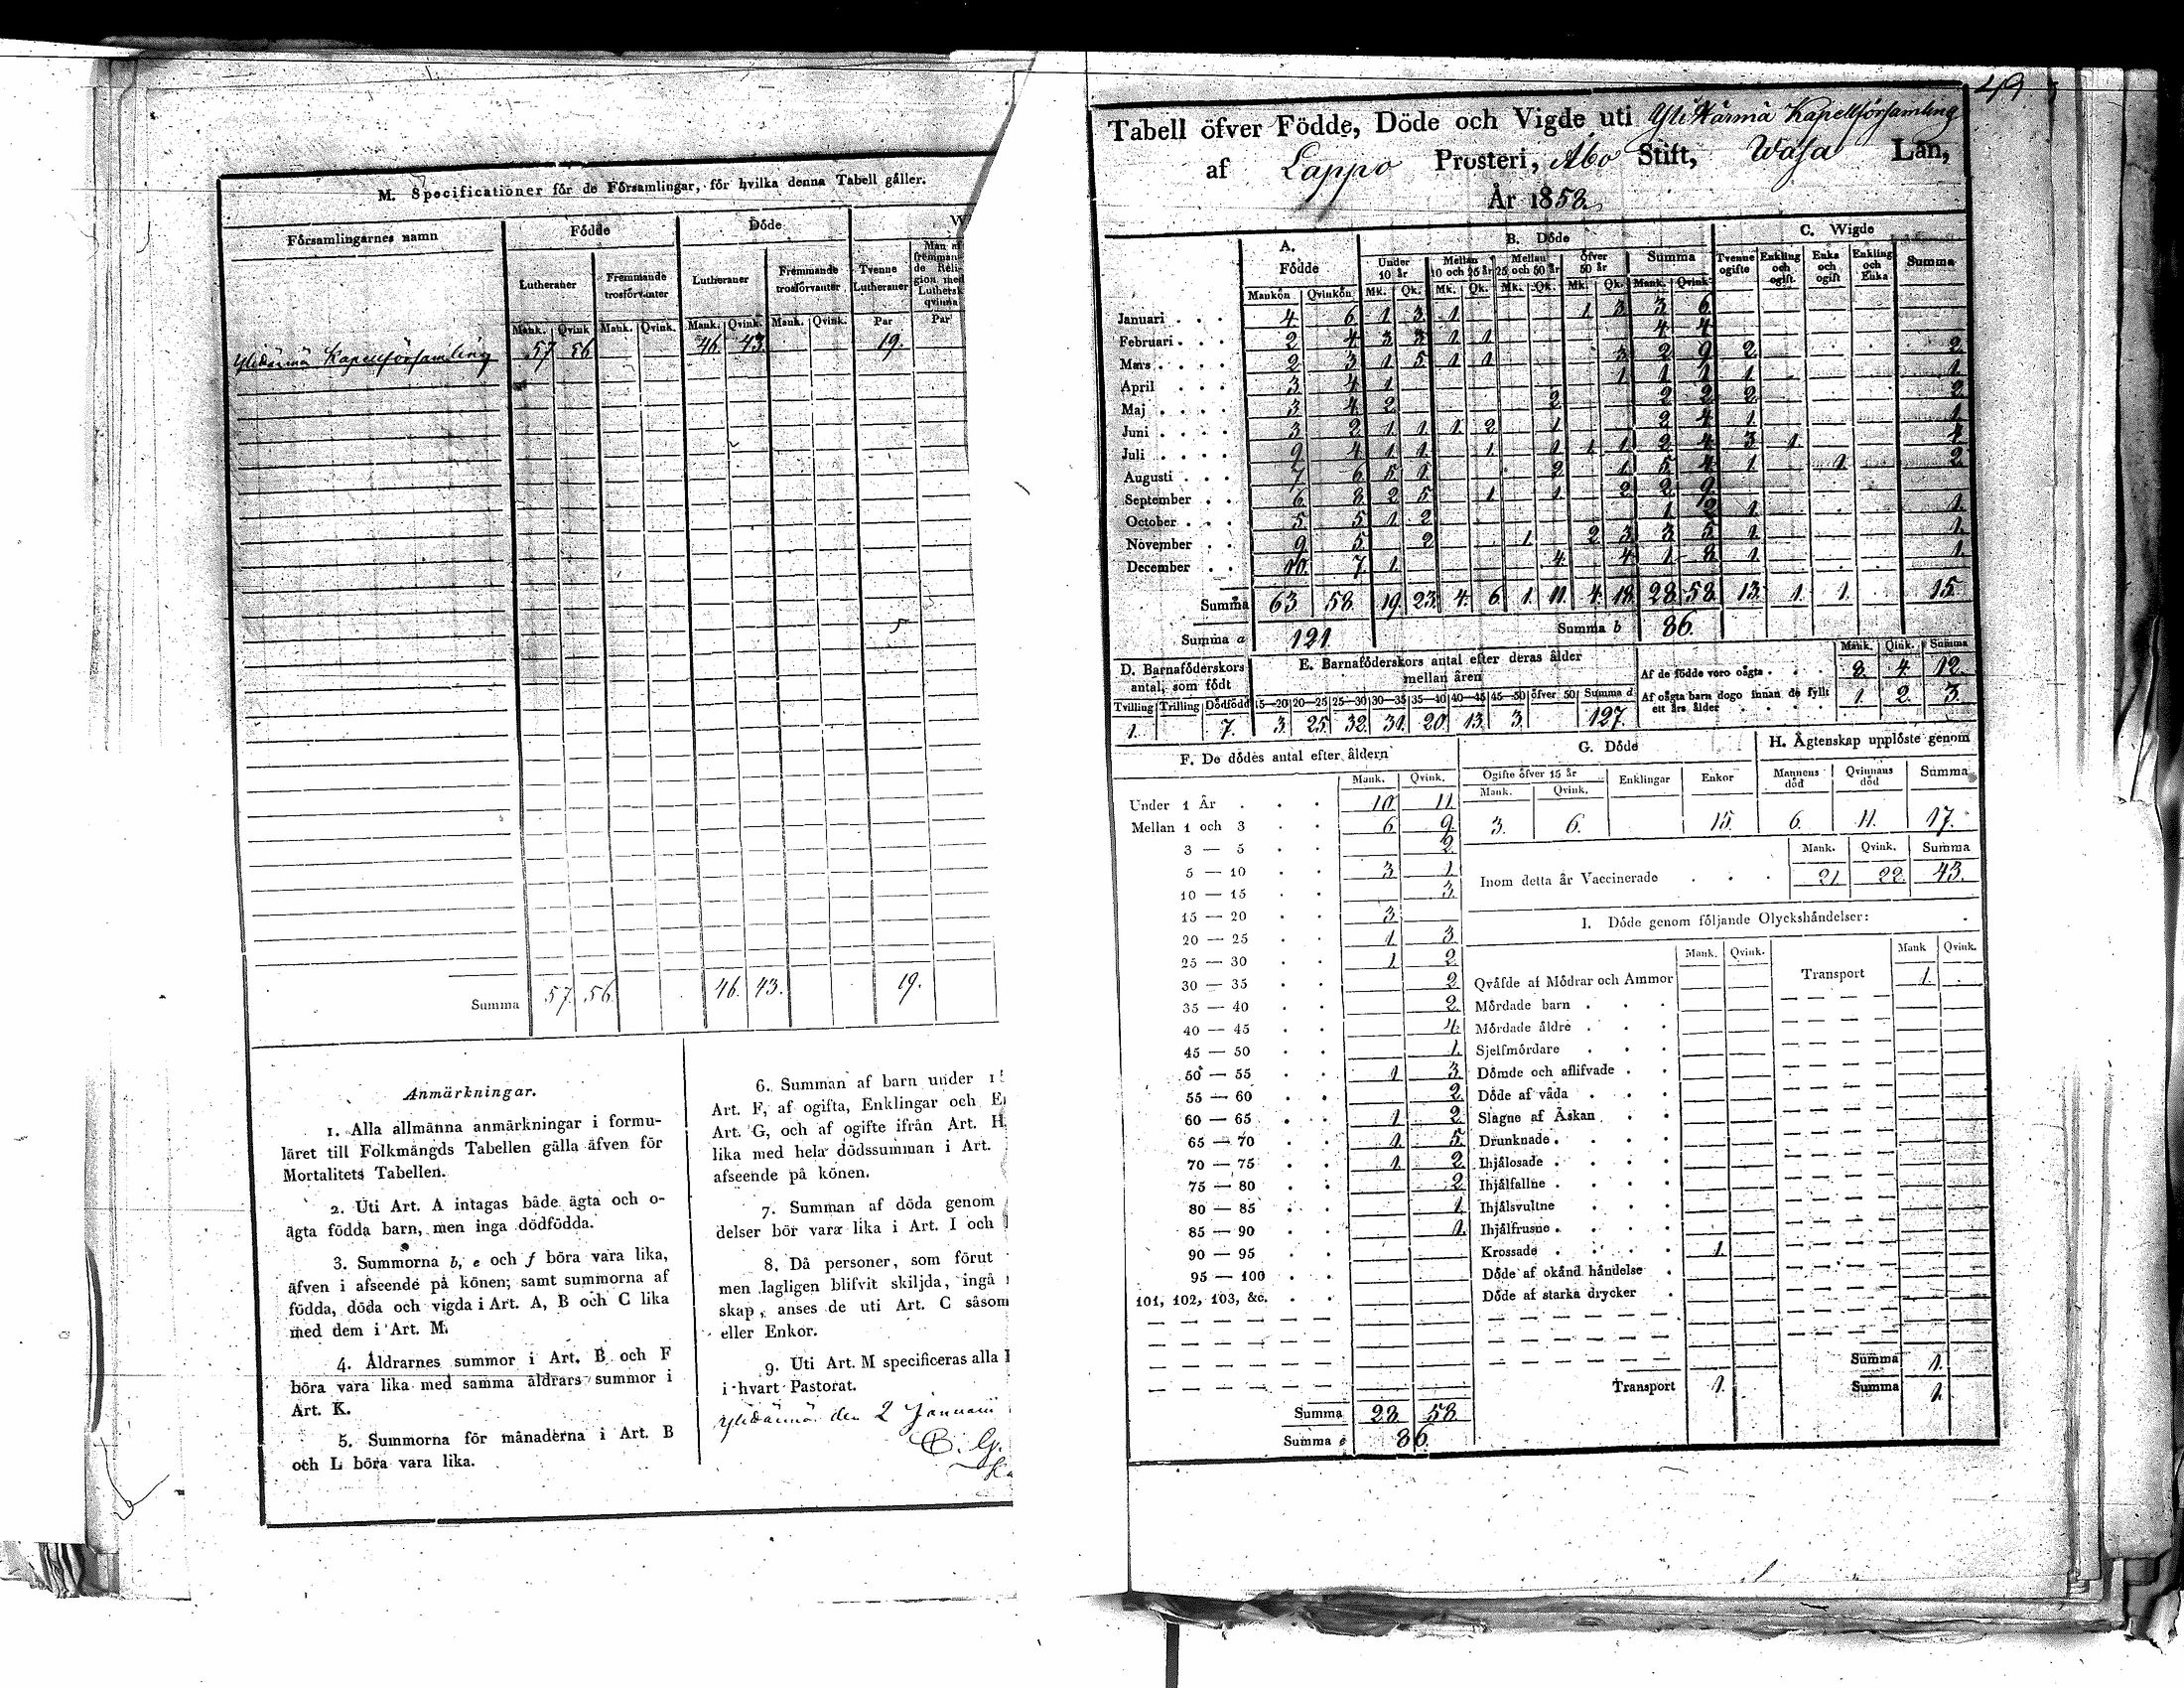 M. Specificationer för de Församlingar, för hvilka denna Tabell gäller.
Församlingarnes namn
Födde
Döde
Lutheraner
Fremmande trosförvanter
Lutheraner
Fremmande trosförvanter
Tvenne Lutheraner
Mank. Qvink Mank. Qvink. Mank. Qvink. Mank. Qvink. Par Par
Kapellförsamling 57 56 46. 43. 19.
Summa 57. 56. 46. 43. 19.
Anmärkningar.
1. Alla allmänna anmärkningar i formu-
läret till Folkmängds Tabellen gälla äfven för
Mortalitets Tabellen.
2. Uti Art. A intagas både ägta och o-
ägta födda barn, men inga dödfödda.
3. Summorna b, e och f böra vara lika,
äfven i afseende på könen; samt summorna af
födda, döda och vigda i Art. A, B och C lika
med dem i Art. M.
4. Åldrarnes summor i Art. B och F
böra vara lika med samma åldrars summor i
Art. K.
5. Summorna för månaderna i Art. B
och L böra vara lika.
6. Summan af barn under
Art. F, af ogifta, Enklingar och
Art. G, och af ogifte ifrån Art. H
lika med hela dödssumman i Art.
afseende på könen.
7. Summan af döda genom
delser bör vara lika i Art. I och
8. Då personer, som förut
men lagligen blifvit skiljda, ingå
skap, anses de uti Art. C såsom
eller Enkor.
9. Uti Art. M specificeras alla
i hvart Pastorat.
den 2 Januarii
49
Tabell öfver Födde, Döde och Vigde uti Kapellförsamling
af Lappo Prosteri, Åbo Stift, Wasa Län,
År 1853.
A. Födde
B. Döde
C. Wigde
Under 10 år
Mellan 10 och 25 år
Mellan 25 och 50 år
Öfver 50 år
Summa
Tvenne ogifte
Enkling och ogift.
Enka och ogift
Enkling och Enka
Summa
Mankön Qvinkön Mk. Qk. Mk. Qk. Mk. Qk. Mk. Qk. Mank. Qvink.
Januari 4 6 1 3 1 1 3 3 6
Februari 2 4 3 3 1 1 4 4
Mars 2 3 1 5 1 1 3 2 9 2 2
April 3 4 1 1 1 1 1 1
Maj 3 4 2 2 2 2 2 2
Juni 3 2 1 1 1 2 1 2 4 1 1
Juli 9 4 1 1 1 1 1 1 2 4 3 1 4
Augusti 7 6 5 1 2 1 5 4 1 1 2
September 6 8 2 5 1 1 2 2 9
October 5 5 1 2 1 2 1 1
November 9 5 2 1 2 3 3 5 1 1
December 10 7 1 4 4 1 8 1 1
Summa 63 58 19 23 4 6 1 11 4 18 28 58 13 1 1 15
Summa a 121
Summa b 86.
D. Barnaföderskors antal, som födt
E. Barnaföderskors antal efter deras ålder mellan åren
Mank. Qvink. Summa
Af de födde voro oägta 8. 4. 12.
Af oägta barn dogo innan de fyllt ett års ålder 1. 2. 3.
Tvilling Trilling Dödfödd 15—20 20—25 25—30 30—35 35—40 40—45 45—50 öfver 50 Summa d
1. 7. 3. 25. 32. 31. 20. 13. 3. 127.
F. De dödes antal efter åldern
G. Döde
H. Ägtenskap upplöste genom
Mank. Qvink.
Ogifte öfver 15 år
Mank. Qvink.
Enklingar
Enkor
Mannens död
Qvinnans död
Summa
3. 6. 15. 6. 11. 17.
Under 1 År 10 11
Mellan 1 och 3 6 9
3 — 5 2
5 — 10 3 1
10 — 15 3
15 — 20 3
20 — 25 1 3
25 — 30 1 2
30 — 35 2
35 — 40 2
40 — 45 4
45 — 50 1
50 — 55 1 3
55 — 60 2
60 — 65 1 2
65 — 70 1 5
70 — 75 1 2
75 — 80 2
80 — 85 1
85 — 90 1
90 — 95
95 — 100
101, 102, 103, &c.
Summa 28 58
Summa e 86.
Mank. Qvink. Summa
Inom detta år Vaccinerade 21 22 43.
I. Döde genom följande Olyckshändelser:
Mank. Qvink.
Mank Qvink.
Qväfde af Mödrar och Ammor
Transport 1.
Mördade barn
Mördade äldre
Sjelfmördare
Dömde och aflifvade
Döde af våda
Slagne af Åskan
Drunknade
Ihjälosade
Ihjälfallne
Ihjälsvultne
Ihjälfrusne
Krossade 1
Döde af okänd händelse
Döde af starka drycker
Summa 1.
Transport 1.
Summa 1.